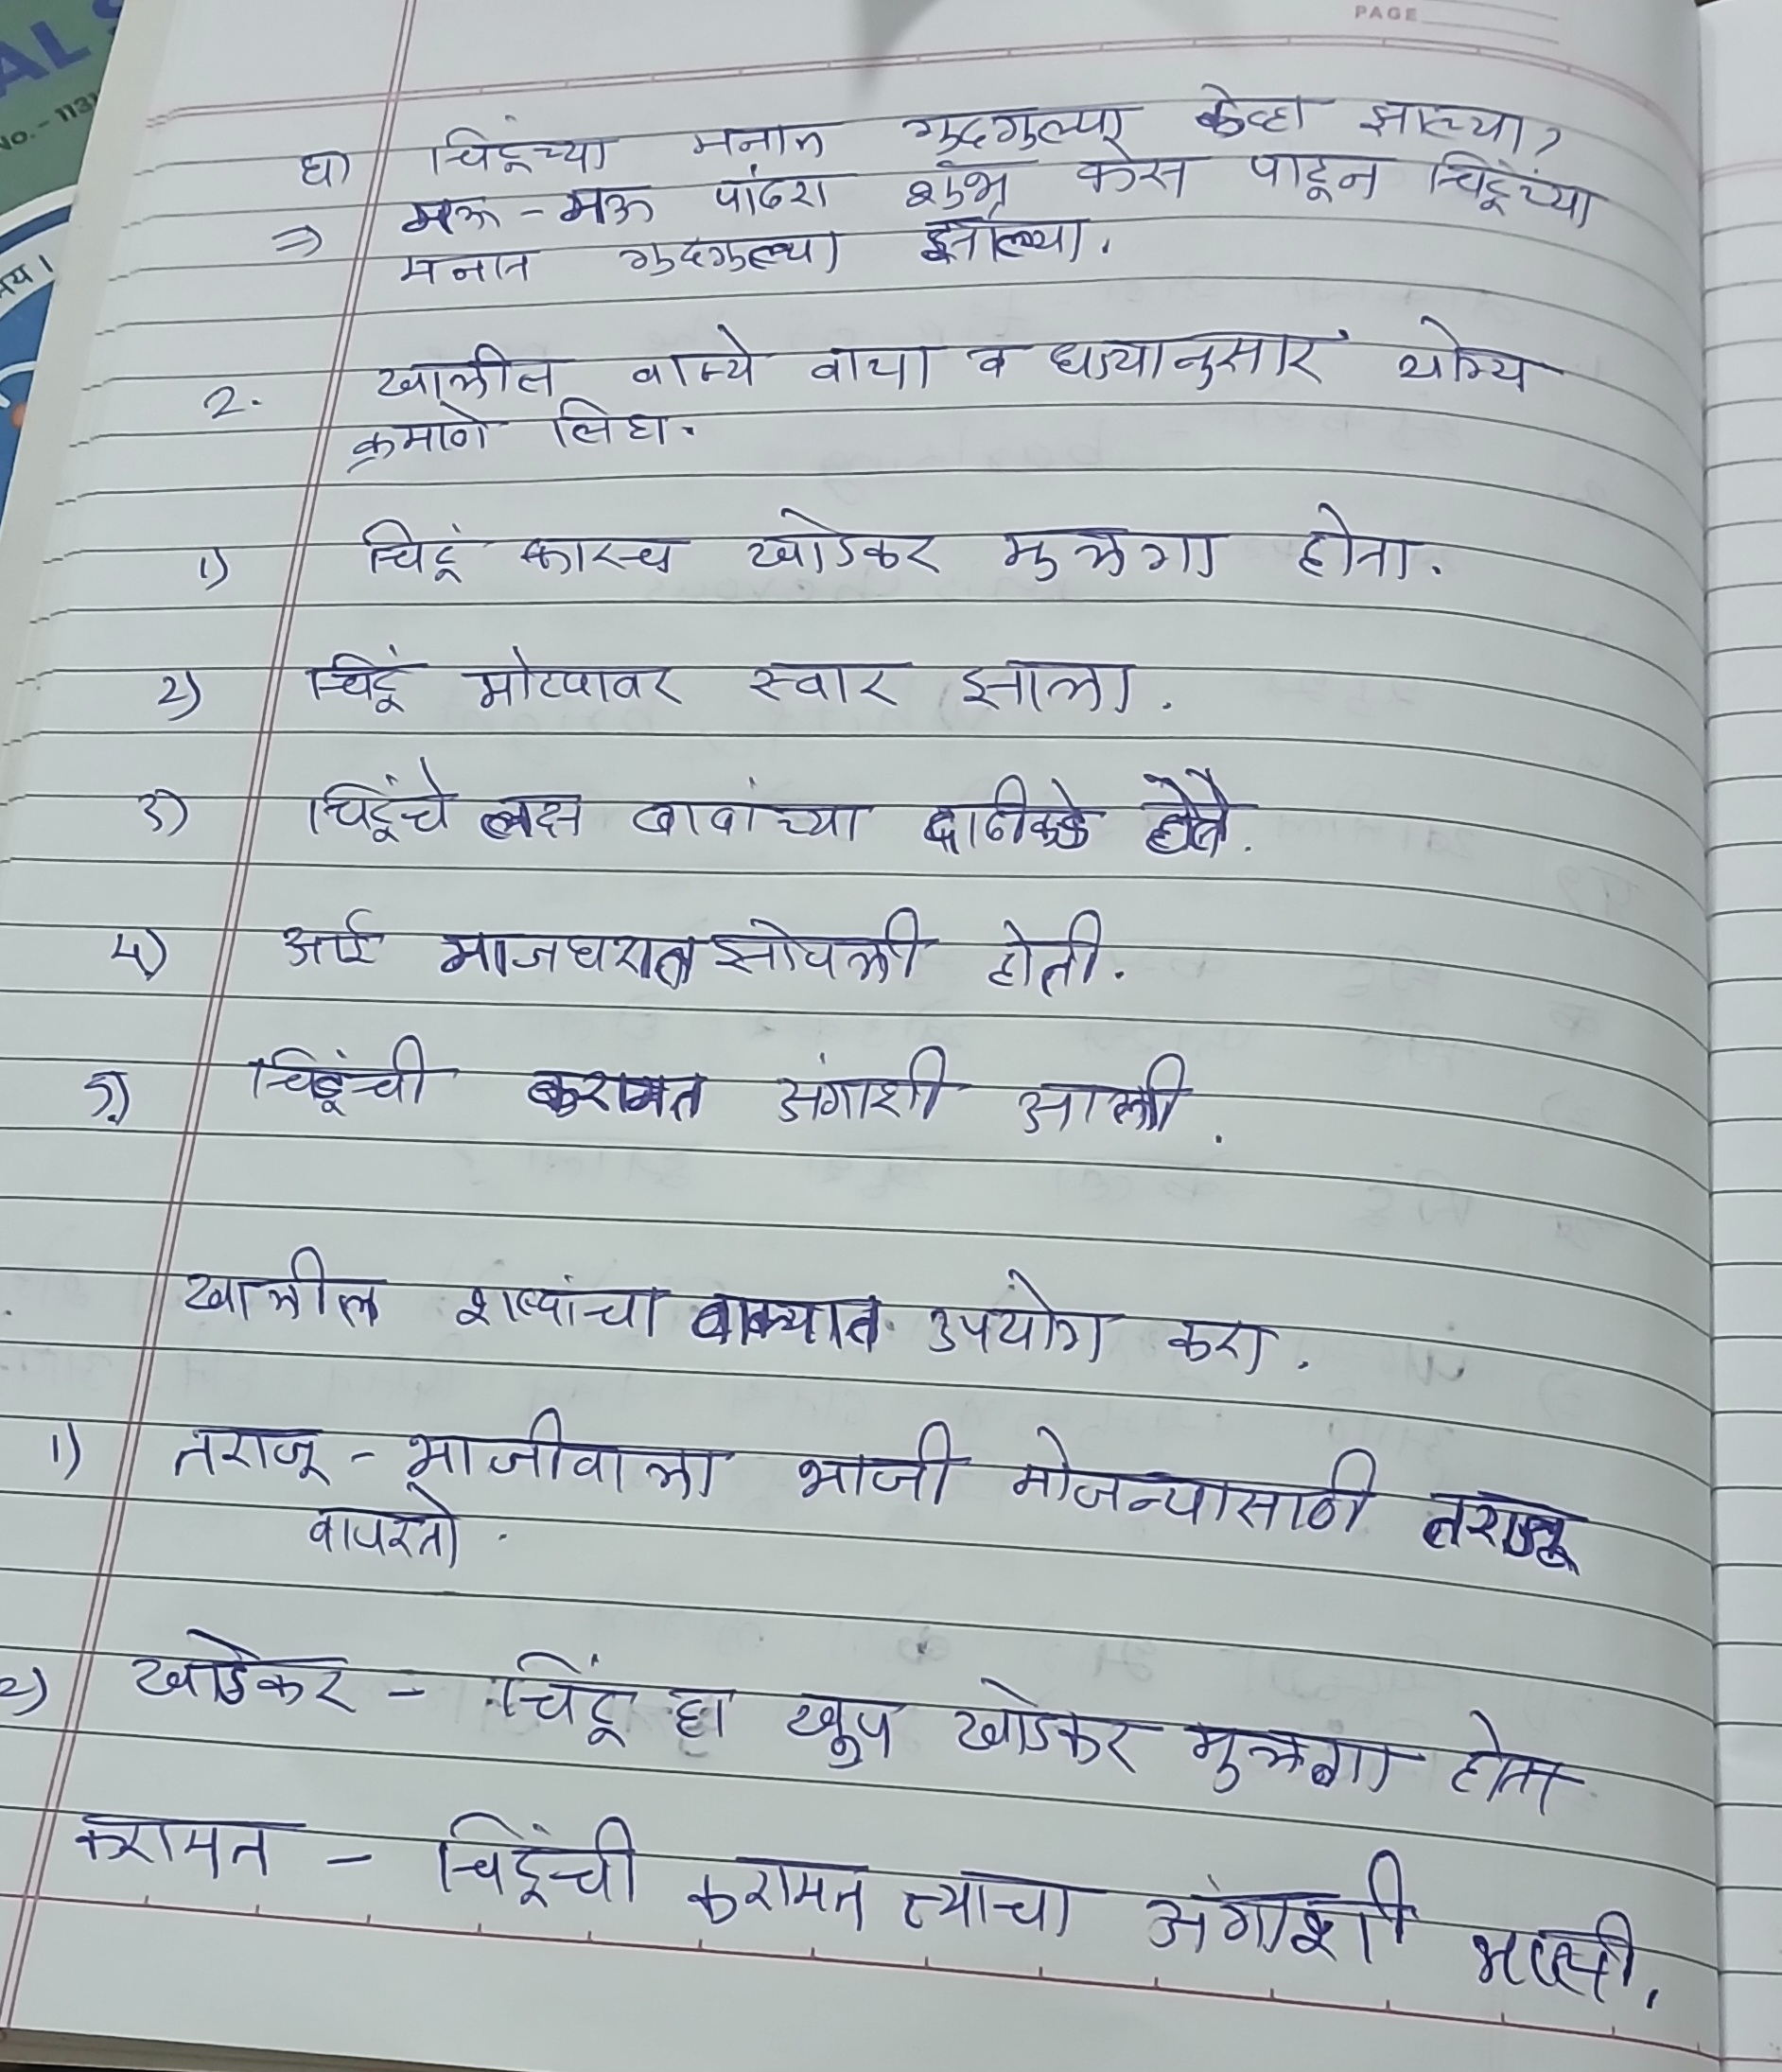 PAGE
AL S
No. - 1131
घ) चिंटूच्या मनात गुदगुल्या केव्हा झाल्या?
⇒ मऊ - मऊ पांढरा शुभ्र केस पाहून चिंटूंच्या
मनात गुदगुल्या झाल्या.
2. खालील वाक्ये वाचा व धड्यानुसार योग्य
क्रमाने लिहा.
1) चिंटूं फारच खोडकर मुलगा होता.
2) चिंटूं मोटयावर स्वार झाला.
3) चिंटूंचे लक्ष बाबांच्या दाढीकडे होते.
4) आई माजघरात झोपली होती.
5) चिंटूंची करामत अंगाशी आली.
खालील शब्दांचा वाक्यात उपयोग करा.
1) तराजू - भाजीवाला भाजी मोजन्यासाठी तराजू
वापरतो.
2) खोडकर - चिंटू हा खुप खोडकर मुलगा होता
करामत - चिंटूंची करामत त्याचा अंगाशी आली.